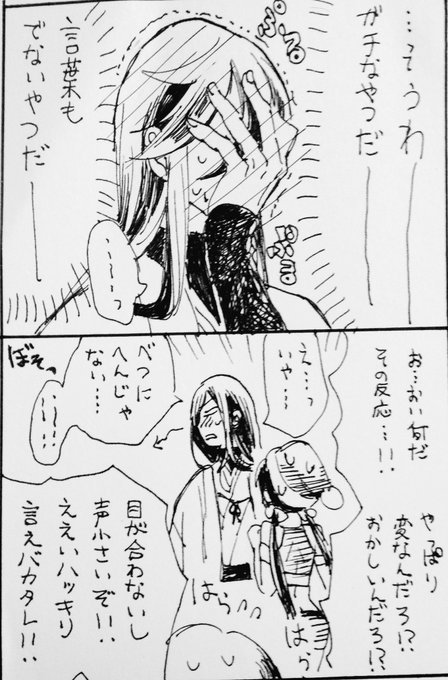 …そうわ——
ガチなやつだ
ぷる
言葉も
でないやつだ——
ぷる
〜〜〜っ
お…おい何だ
その反応…!!
やっぱり
変なんだろ!?
おかしいんだろ!?
え…っ
いや…
べつに
へんじゃ
ない……
ぼそっ
〜〜!!
はらハラ
はら
目が合わないし
声小さいぞ!!
ええいハッキリ
言えバカタレ!!